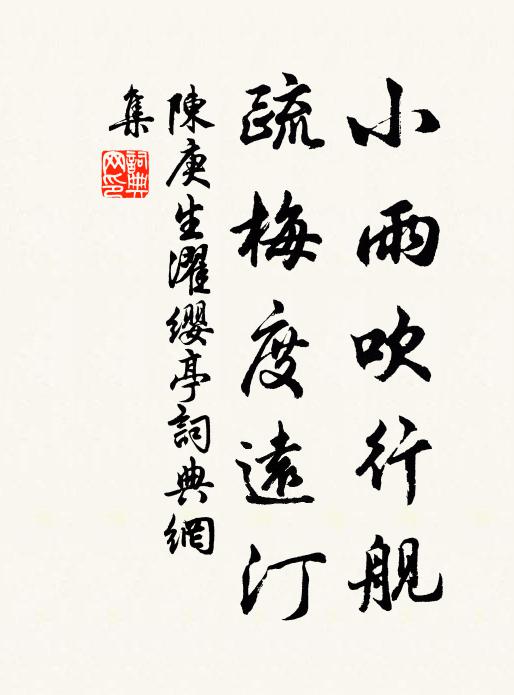 小雨吹行舰
疏梅度遠汀
陳庚生濯纓亭詞典網
集
詞典
网印